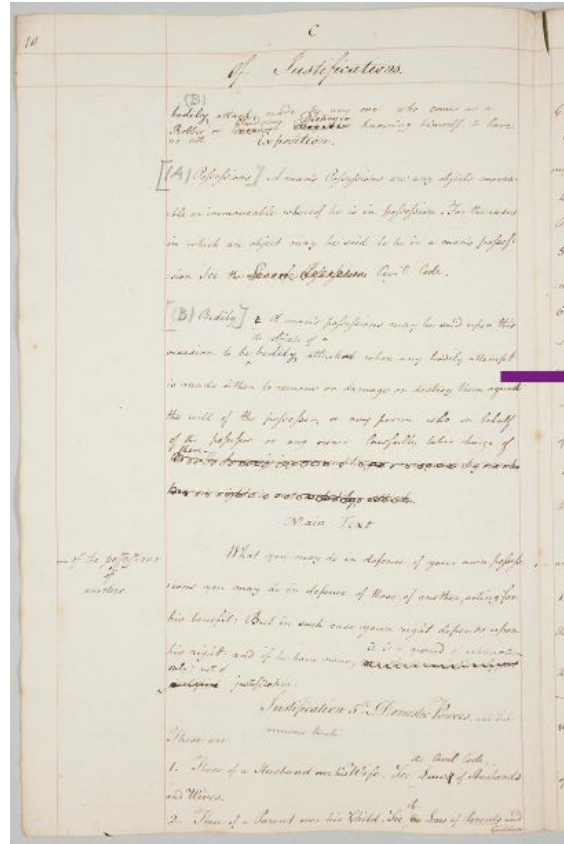 10
C
Of Justifications.
(B)
bodily attack made by any one who comes as a
Robber or knowing himself to have
no
Exposition.
[(A) Possessions] A man's Possessions are any objects movea-
ble or immoveable whereof he is in possession. For the cases
in which an object may be said to be in a man's posses-
sion See the Civil Code.
[(B) Bodily] A man's possessions may be said upon this
the object of a
occasion to be bodily attack when any bodily attempt
is made either to remove or damage or destroy them against
the will of the possessor, or any person who on behalf
of the possessor or any owner lawfully takes charge of
them.
Main Text
— of the possessions
of
another
What you may do in defence of your own posses-
sions you may do in defence of those of another, acting for
his benefit: But in such case your right depends upon
his right: and if he have none, it is a ground of extenuation
only: not of
justification.
Justification 5th. Domestic Powers,
These are
the Civil Code,
1. Those of a Husband over his Wife. See Law of Husbands
and Wives.
2. Those of a Parent over his Child. See the Law of Parents and
Children